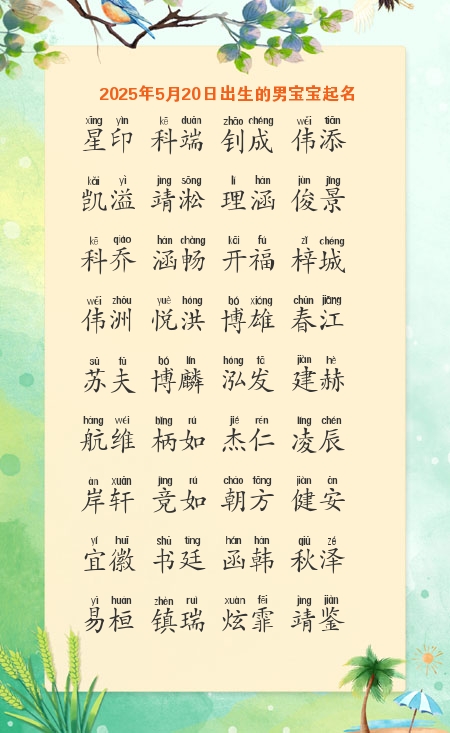 2025年5月20日出生的男宝宝起名
xīng yìn kē duān zhāo chéng wěi tiān
星印 科端 钊成 伟添
kǎi yì jìng sōng lǐ hán jùn jǐng
凯溢 靖淞 理涵 俊景
kē qiáo hán chàng kāi fú zǐ chéng
科乔 涵畅 开福 梓城
wěi zhōu yuè hóng bó xióng chūn jiāng
伟洲 悦洪 博雄 春江
sū fū bó lín hóng fā jiàn hè
苏夫 博麟 泓发 建赫
háng wéi bǐng rú jié rén líng chén
航维 柄如 杰仁 凌辰
àn xuān jìng rú cháo fāng jiàn ān
岸轩 竞如 朝方 健安
yí huī shū tíng hán hán qiū zé
宜徽 书廷 函韩 秋泽
yì huán zhèn ruì xuàn fēi jìng jiàn
易桓 镇瑞 炫霏 靖鉴